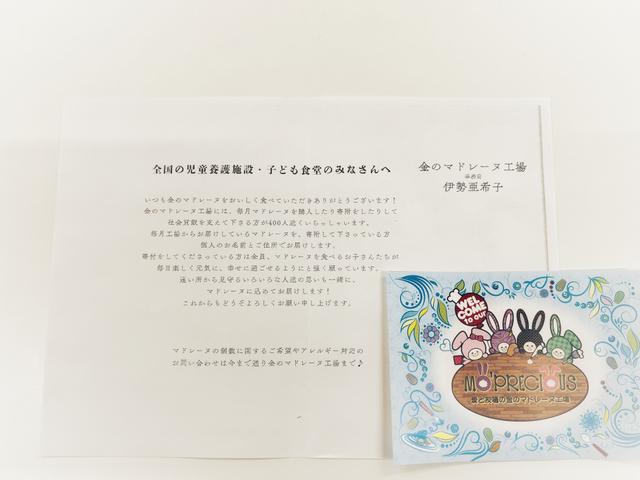 全国の児童養護施設・子ども食堂のみなさんへ
金のマドレーヌ工場
伊勢亜希子
いつも金のマドレーヌをおいしく食べていただきありがとうございます!
金のマドレーヌ工場には、毎月マドレーヌを購入したり寄附をしたりして
社会貢献を支えて下さる方が400人近くいらっしゃいます。
毎月工場からお届けしているマドレーヌを、寄附して下さっている方
個人のお名前とご住所でお届けします。
寄付をしてくださっている方は全員、マドレーヌを食べるお子さんたちが
毎日楽しく元気に、幸せに過ごせるようにと強く願っています。
遠い所から見守るいろいろな人達の思いも一緒に、
マドレーヌに込めてお届けします!
これからもどうぞよろしくお願い申し上げます。
マドレーヌの個数に関するご希望やアレルギー対応の
お問い合わせは今まで通り金のマドレーヌ工場まで♪
WEL
COME
to our
MO'PRECIOUS
愛と祝福の金のマドレーヌ工場